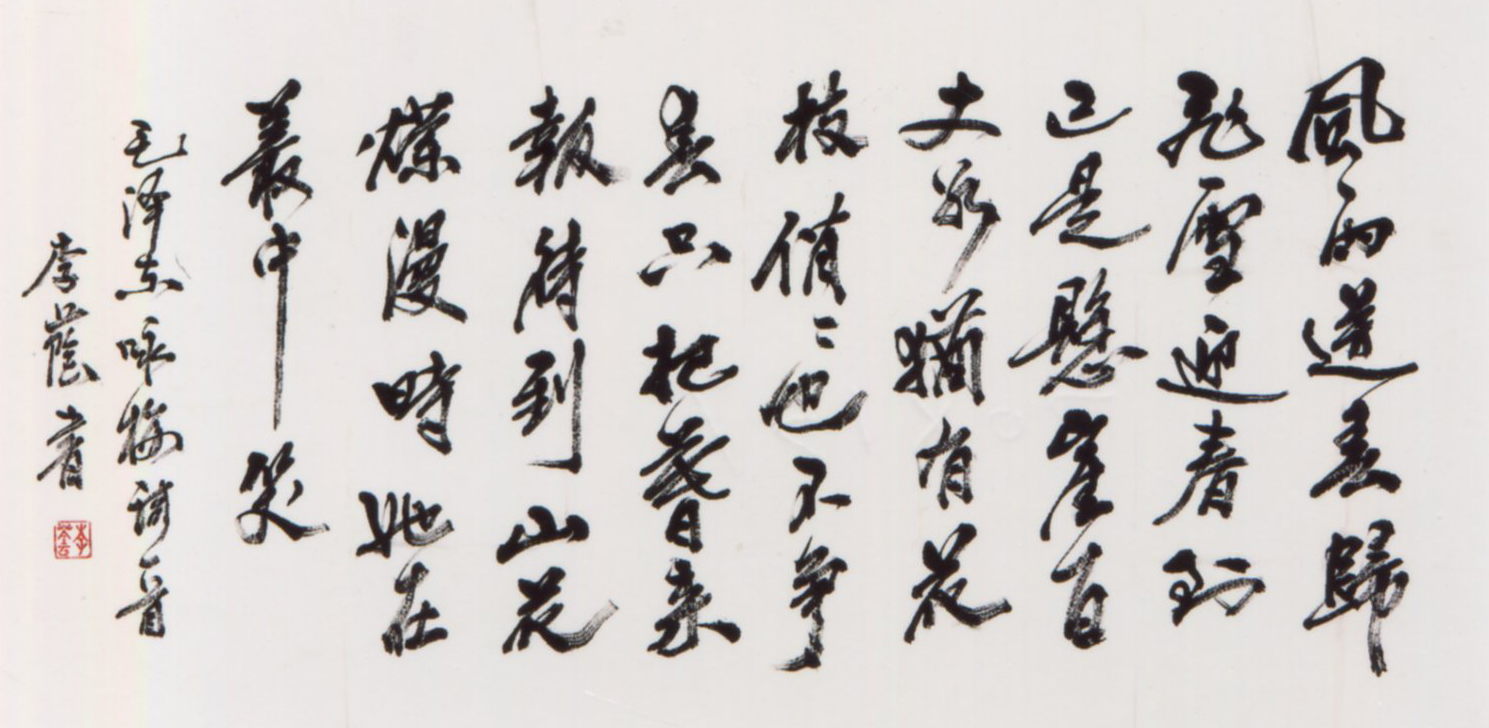 風雨送春歸
飛雪迎春到
已是懸崖百
丈冰猶有花
枝俏〻也不爭
春只把春来
報待到山花
爛漫時她在
叢中笑
毛泽东咏梅詞一首
李蔭書